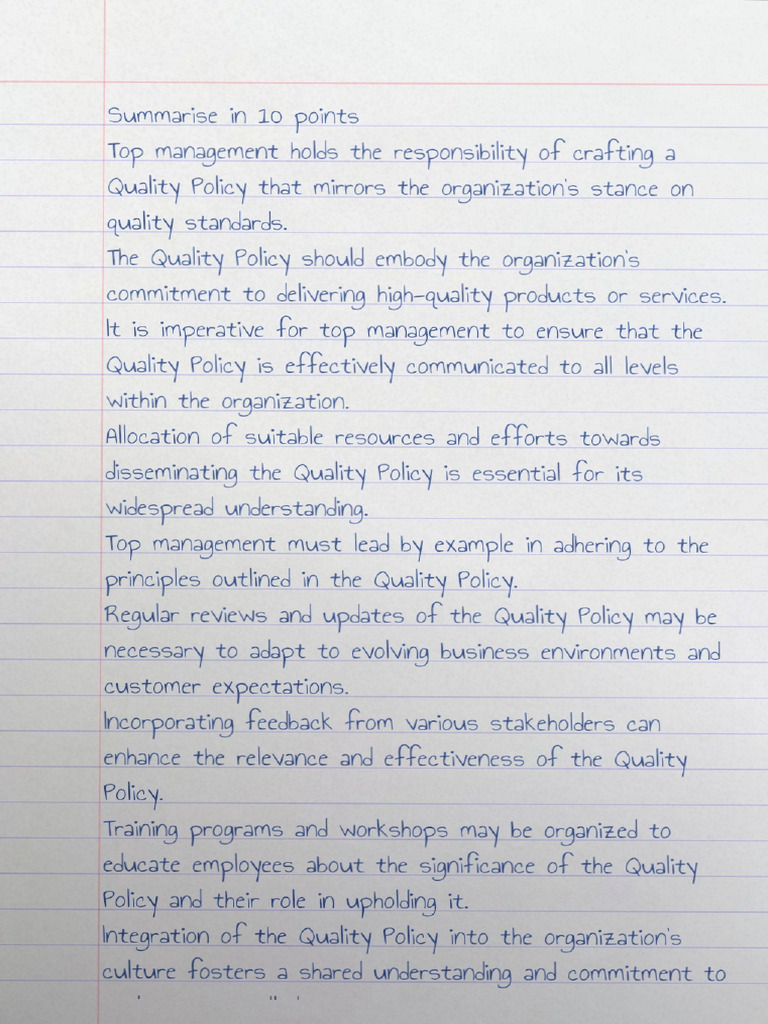 Summarise in 10 points
Top management holds the responsibility of crafting a
Quality Policy that mirrors the organization's stance on
quality standards.
The Quality Policy should embody the organization's
commitment to delivering high-quality products or services.
It is imperative for top management to ensure that the
Quality Policy is effectively communicated to all levels
within the organization.
Allocation of suitable resources and efforts towards
disseminating the Quality Policy is essential for its
widespread understanding.
Top management must lead by example in adhering to the
principles outlined in the Quality Policy.
Regular reviews and updates of the Quality Policy may be
necessary to adapt to evolving business environments and
customer expectations.
Incorporating feedback from various stakeholders can
enhance the relevance and effectiveness of the Quality
Policy.
Training programs and workshops may be organized to
educate employees about the significance of the Quality
Policy and their role in upholding it.
Integration of the Quality Policy into the organization's
culture fosters a shared understanding and commitment to